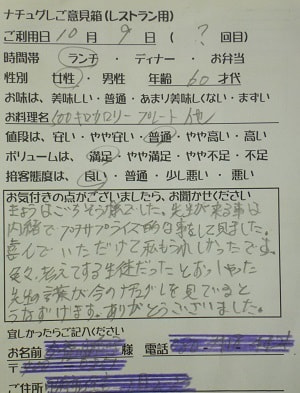 ナチュグしご意見箱(レストラン用)
ご利用日10月9日(?回目)
時間帯 ランチ・ディナー・お弁当
性別 女性・男性 年齢60才代
お味は、美味しい・普通・あまり美味しくない・まずい
お料理名 500キロカロリープレート 他
値段は、安い・やや安い・普通・やや高い・高い
ボリュームは、満足・やや満足・やや不足・不足
接客態度は、良い・普通・少し悪い・悪い
お気付きの点がございましたら、お聞かせください
きょうはごちそう様でした。先生が来る事は
内緒でプチサプライズ的な事をして見ました。
喜んでいただけて私もうれしかったです。
色々、考えてする生徒だったとおっしゃった
先生の言葉が今のナチュグしを見ていると
うなずけます。ありがとうございました。
宜しかったらご記入ください
お名前 様 電話
〒
ご住所